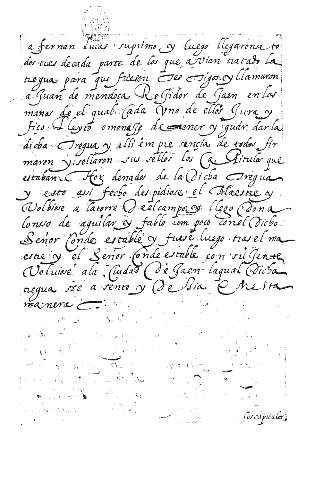 a fernan luias su primo y luego llegaron a to
dos tres de cada parte de los que avian tratado la
tregua para que fuesen testigos y llamaron
a Juan de mendoça Regidor de Jaen en las
manos de el qual cada uno de ellos jura y
fiço pleyto omenaje de tener y guardar la
dicha tregua y alli en presencia de todos fir
maron y sellaron sus sellos los capitulos que
estaban hordenados de la dicha tregua
y esto assi fecho despidiose el Maestre y
volbiose a la torre del campo y llego don a
lonso de aguilar y fablo un poco con el dicho
Señor Condestable y fuese luego tras el ma
estre y el Señor Condestable con su gente
volviose a la ciudad de Jaen la qual dicha
tregua se asento y de esta
manera
los capitulos